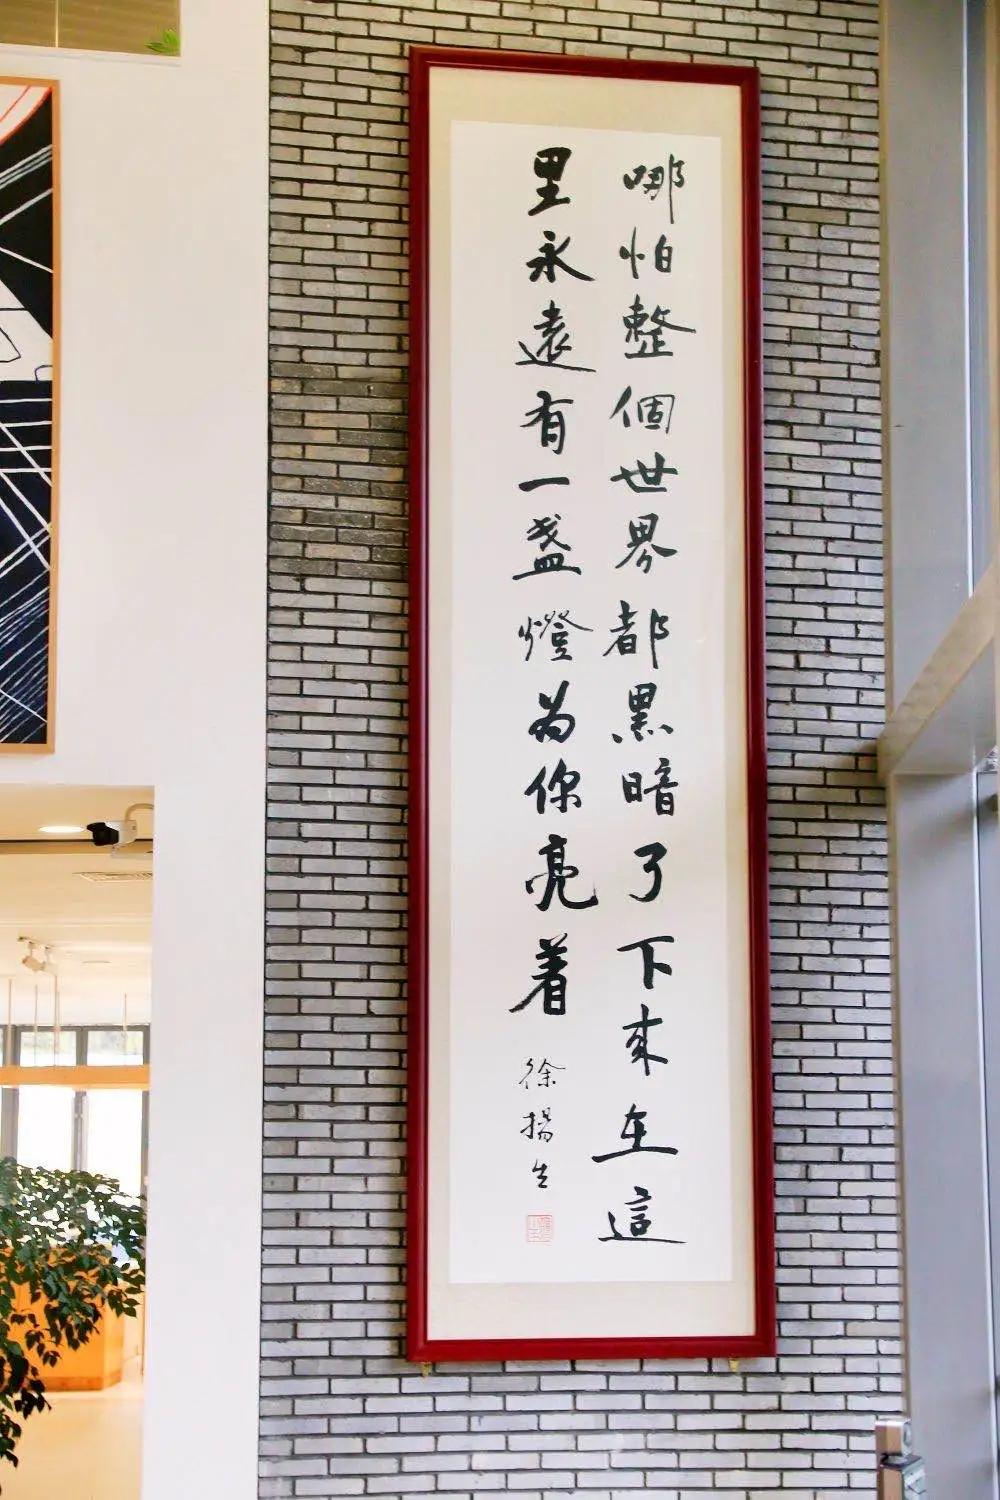 哪怕整個世界都黑暗了下來在這
里永遠有一盏燈為你亮着
徐揚生